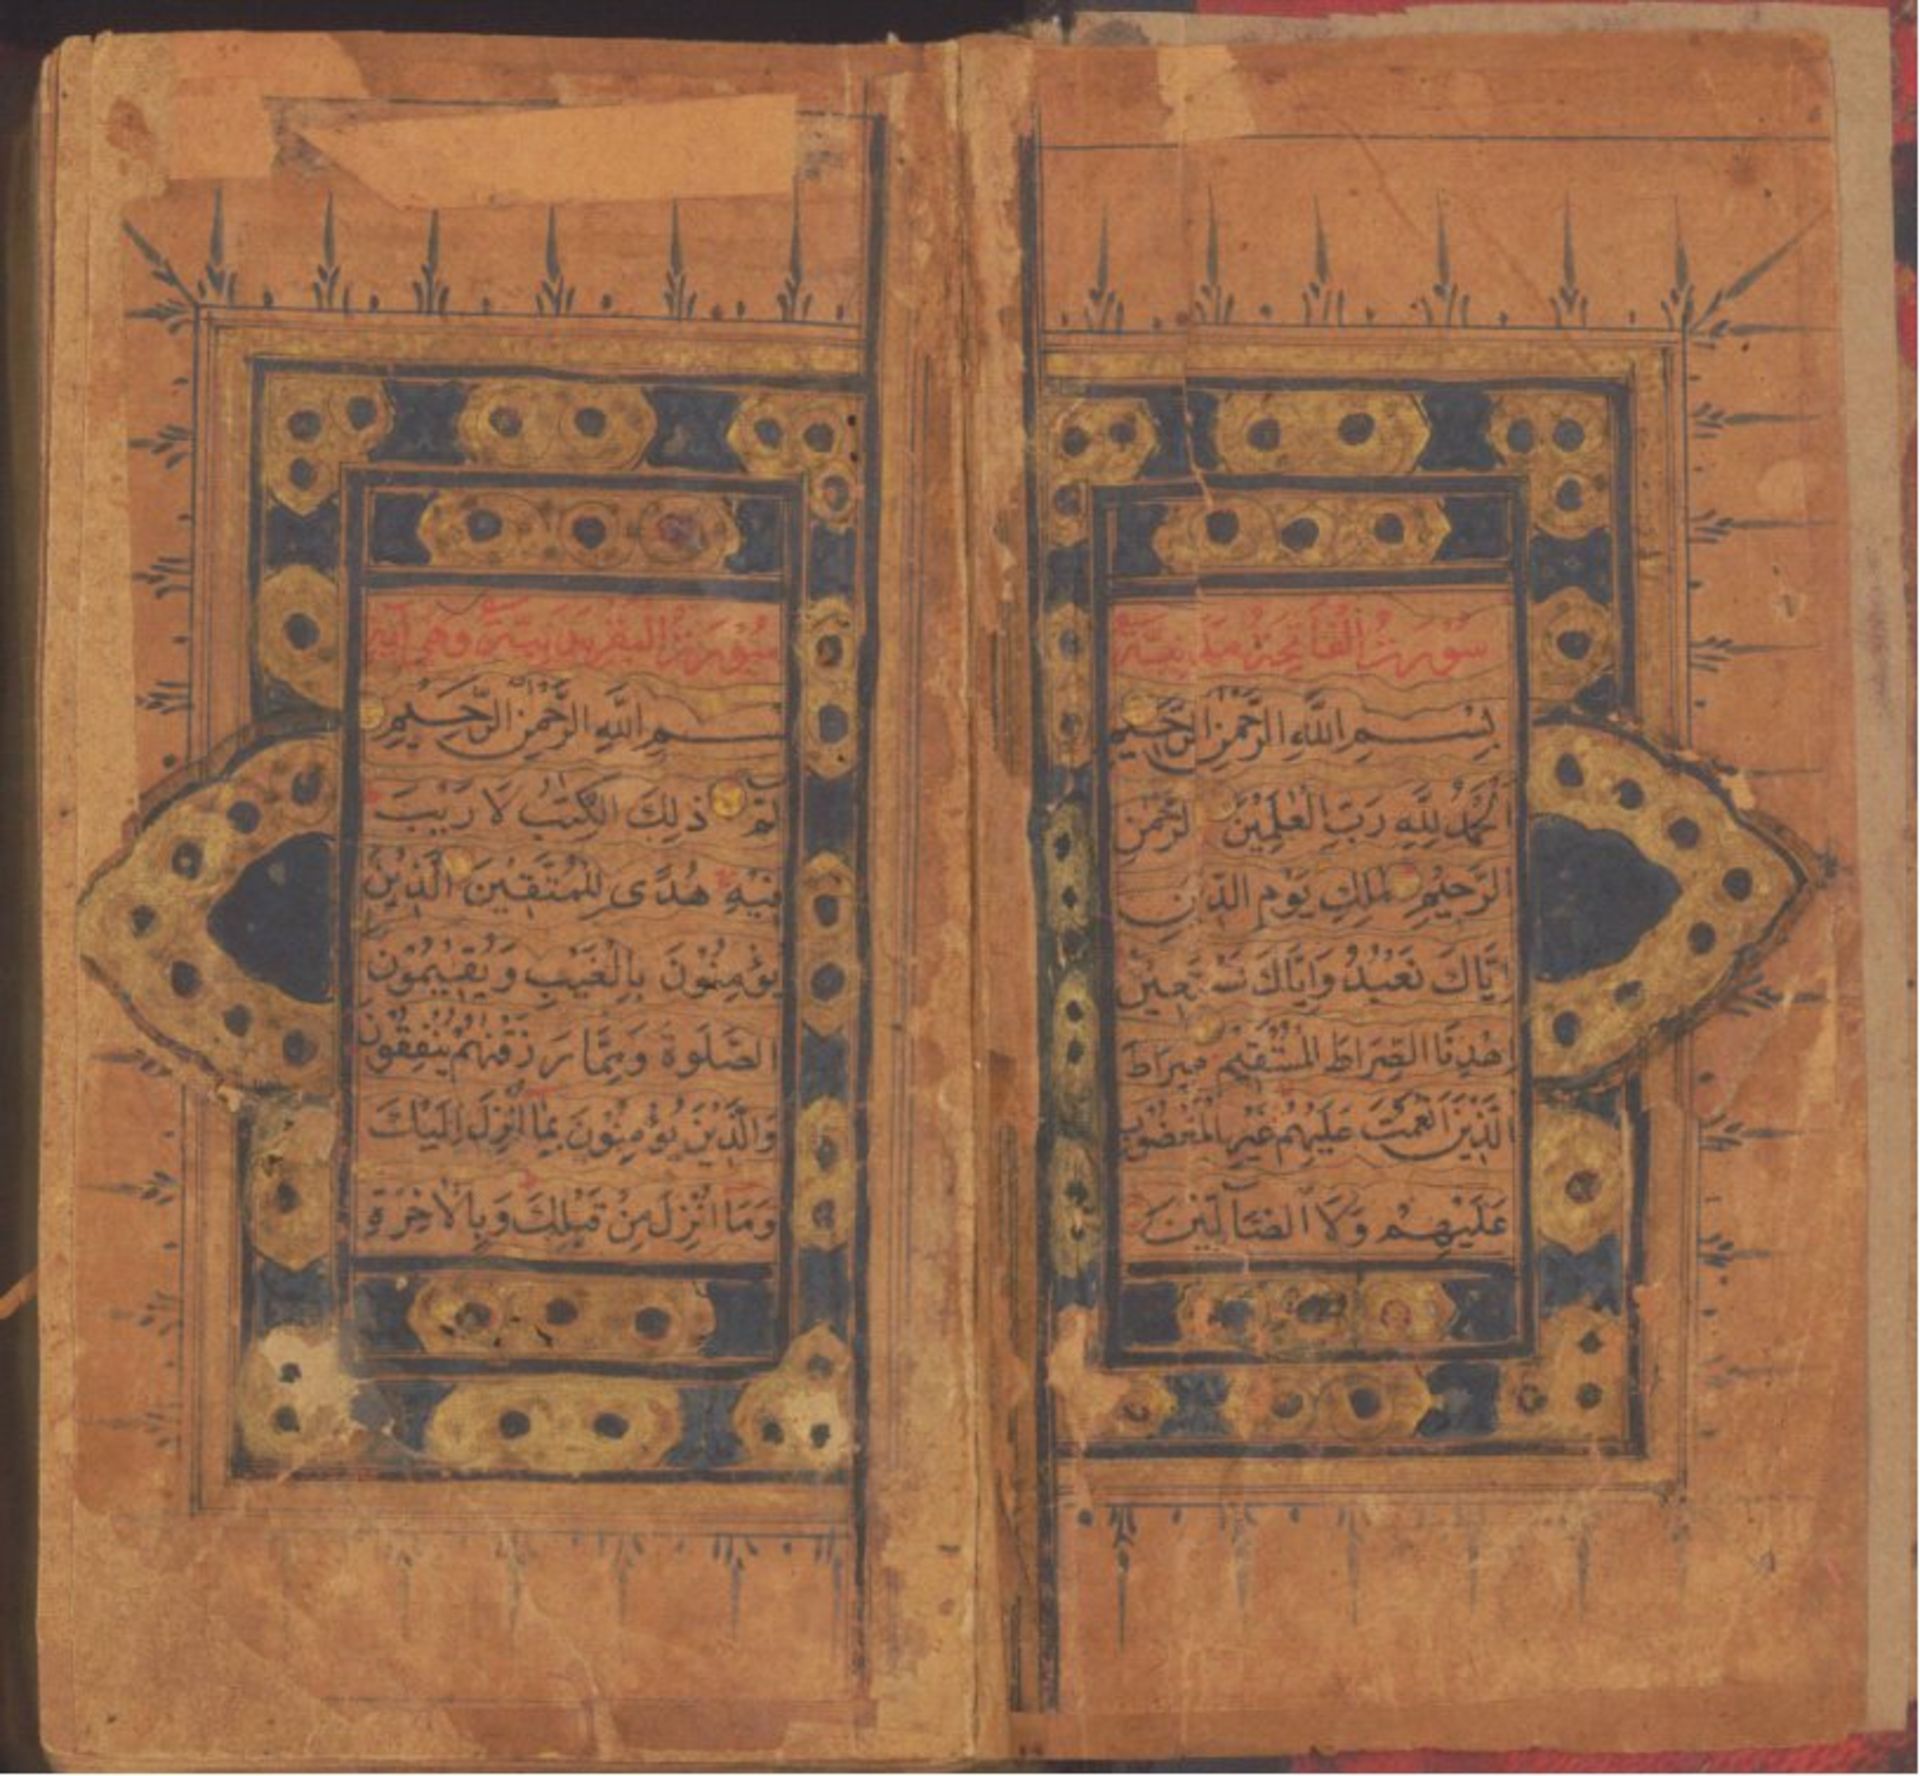 سورة الفاتحة مدنية
بِسْمِ اللَّهِ الرَّحْمٰنِ الرَّحِيمِ
اَلْحَمْدُ لِلَّهِ رَبِّ الْعٰلَمِيْنَ الرَّحْمٰنِ
الرَّحِيْمِ مٰلِكِ يَوْمِ الدِّيْنِ
اِيَّاكَ نَعْبُدُ وَاِيَّاكَ نَسْتَعِيْنُ
اِهْدِنَا الصِّرَاطَ الْمُسْتَقِيْمَ صِرَاطَ
الَّذِيْنَ اَنْعَمْتَ عَلَيْهِمْ غَيْرِ الْمَغْضُوْبِ
عَلَيْهِمْ وَلَا الضَّآلِّيْنَ
سورة البقرة وهي
بِسْمِ اللَّهِ الرَّحْمٰنِ الرَّحِيْمِ
الٓمّٓ ذٰلِكَ الْكِتٰبُ لَا رَيْبَ
فِيْهِ هُدًى لِلْمُتَّقِيْنَ الَّذِيْنَ
يُؤْمِنُوْنَ بِالْغَيْبِ وَيُقِيْمُوْنَ
الصَّلٰوةَ وَمِمَّا رَزَقْنٰهُمْ يُنْفِقُوْنَ
وَالَّذِيْنَ يُؤْمِنُوْنَ بِمَا اُنْزِلَ اِلَيْكَ
وَمَا اُنْزِلَ مِنْ قَبْلِكَ وَبِالْاٰخِرَةِ